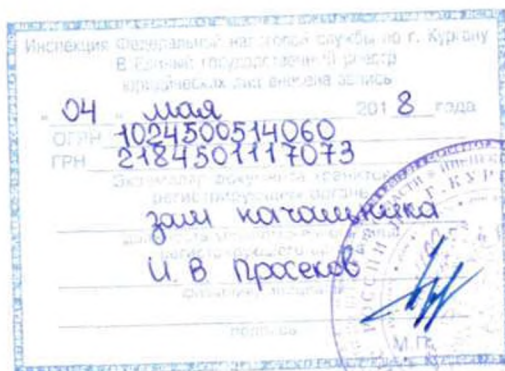 Инспекция Федеральной налоговой службы по г. Кургану
В Единый государственный реестр
юридических лиц внесена запись
"04" мая 2018 года
ОГРН 1024500514060
ГРН 2184501117073
Экземпляр документа хранится в
регистрирующем органе
зам начальника
регистрирующего органа
И. В. Просеков
подпись
М.П.